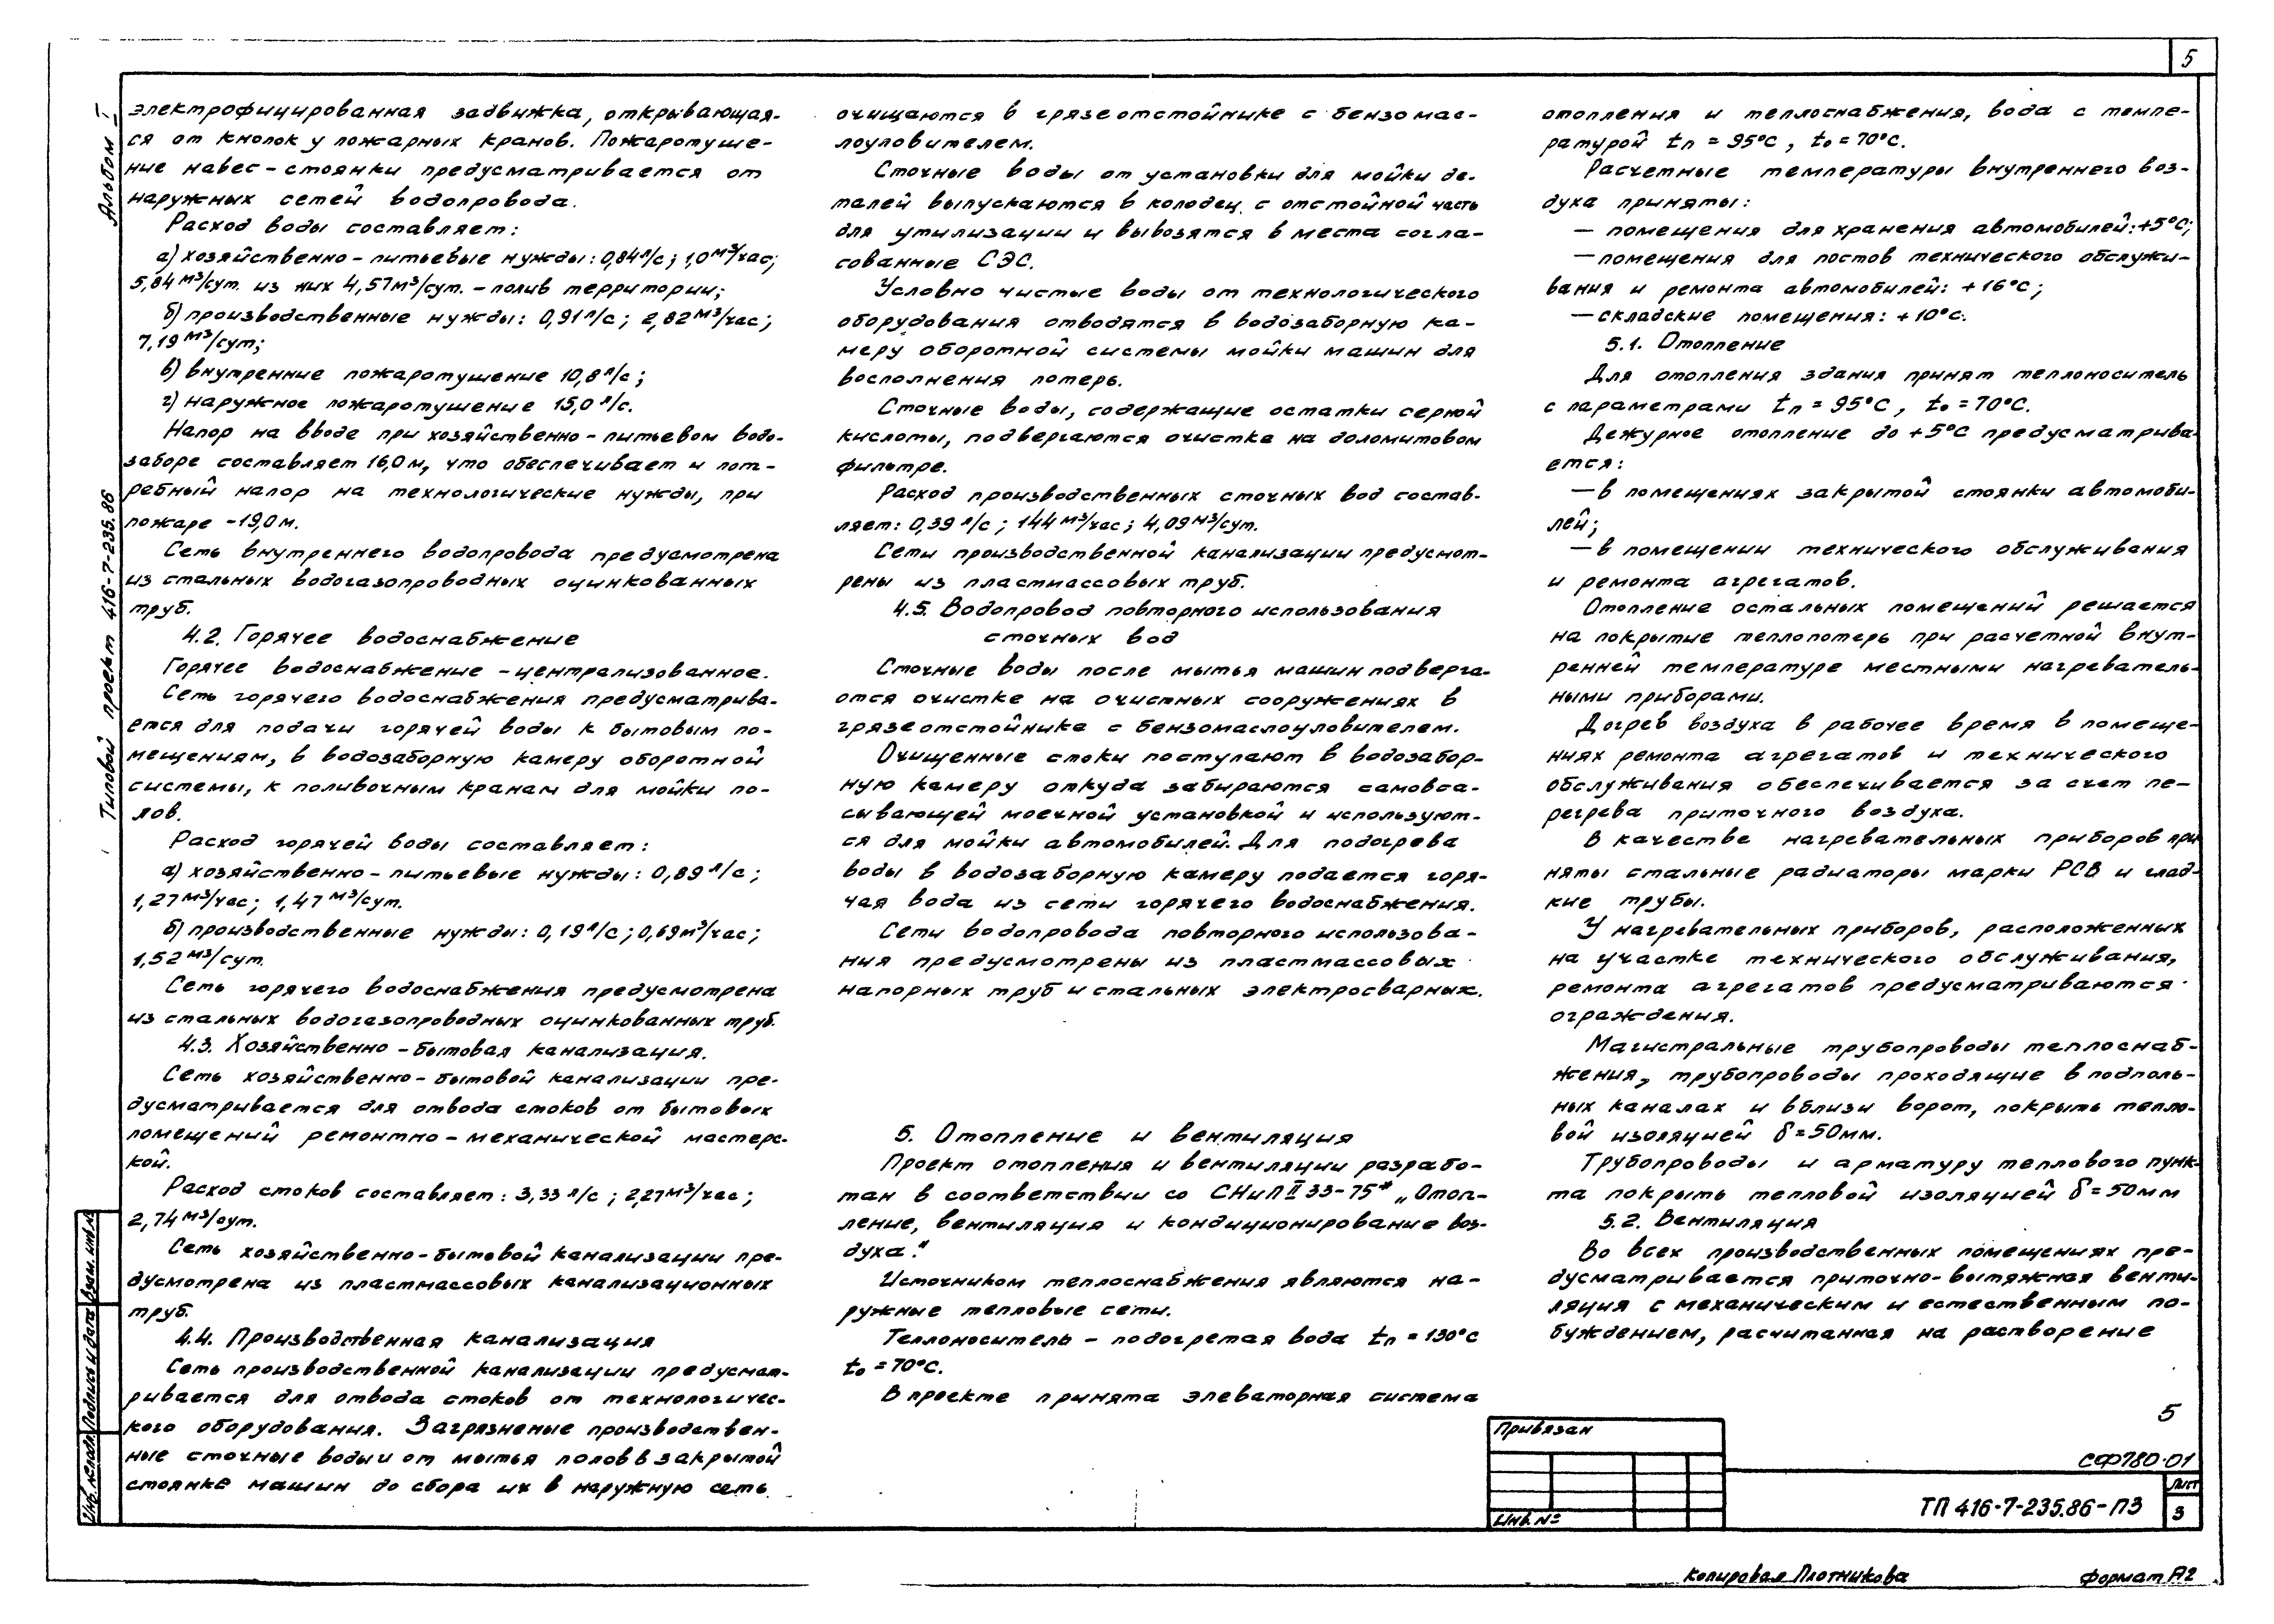 5
Альбом I
Типовой проект 416-7-235.86
электрофицированная задвижка, открывающая-
ся от кнопок у пожарных кранов. Пожаротуше-
ние навес-стоянки предусматривается от
наружных сетей водопровода.
Расход воды составляет:
а) хозяйственно-питьевые нужды: 0,84 л/с; 1,0 м³/час;
5,84 м³/сут. из них 4,57 м³/сут. - полив территории;
б) производственные нужды: 0,91 л/с; 2,82 м³/час;
7,19 м³/сут;
в) внутренние пожаротушение 10,8 л/с;
г) наружное пожаротушение 15,0 л/с.
Напор на вводе при хозяйственно-питьевом водо-
заборе составляет 16,0 м, что обеспечивает и пот-
ребный напор на технологические нужды, при
пожаре -19,0 м.
Сеть внутреннего водопровода предусмотрена
из стальных водогазопроводных оцинкованных
труб.
4.2. Горячее водоснабжение
Горячее водоснабжение - централизованное.
Сеть горячего водоснабжения предусматрива-
ется для подачи горячей воды к бытовым по-
мещениям, в водозаборную камеру оборотной
системы, к поливочным кранам для мойки по-
лов.
Расход горячей воды составляет:
а) хозяйственно-питьевые нужды: 0,89 л/с;
1,27 м³/час; 1,47 м³/сут.
б) производственные нужды: 0,19 л/с; 0,69 м³/час;
1,52 м³/сут.
Сеть горячего водоснабжения предусмотрена
из стальных водогазопроводных оцинкованных труб.
4.3. Хозяйственно-бытовая канализация.
Сеть хозяйственно-бытовой канализации пре-
дусматривается для отвода стоков от бытовых
помещений ремонтно-механической мастерс-
кой.
Расход стоков составляет: 3,33 л/с; 2,27 м³/час;
2,74 м³/сут.
Сеть хозяйственно-бытовой канализации пре-
дусмотрена из пластмассовых канализационных
труб.
4.4. Производственная канализация
Сеть производственной канализации предусмат-
ривается для отвода стоков от технологичес-
кого оборудования. Загрязненые производствен-
ные сточные воды и от мытья полов в закрытой
стоянке машин до сбора их в наружную сеть
очищаются в грязеотстойнике с бензомас-
лоуловителем.
Сточные воды от установки для мойки де-
талей выпускаются в колодец с отстойной часть
для утилизации и вывозятся в места согла-
сованные СЭС.
Условно чистые воды от технологического
оборудования отводятся в водозаборную ка-
меру оборотной системы мойки машин для
восполнения потерь.
Сточные воды, содержащие остатки серной
кислоты, подвергаются очистке на доломитовом
фильтре.
Расход производственных сточных вод состав-
ляет: 0,39 л/с; 1,44 м³/час; 4,09 м³/сут.
Сети производственной канализации предусмот-
рены из пластмассовых труб.
4.5. Водопровод повторного использования
сточных вод
Сточные воды после мытья машин подверга-
ются очистке на очистных сооружениях в
грязеотстойнике с бензомаслоуловителем.
Очищенные стоки поступают в водозабор-
ную камеру откуда забираются самовса-
сывающей моечной установкой и используют-
ся для мойки автомобилей. Для подогрева
воды в водозаборную камеру подается горя-
чая вода из сети горячего водоснабжения.
Сети водопровода повторного использова-
ния предусмотрены из пластмассовых
напорных труб и стальных электросварных.
5. Отопление и вентиляция
Проект отопления и вентиляции разрабо-
тан в соответствии со СНиП II 33-75* „Отоп-
ление, вентиляция и кондиционирование воз-
духа."
Источником теплоснабжения являются на-
ружные тепловые сети.
Теплоноситель - подогретая вода tп = 130°С
tо = 70°С.
В проекте принята элеваторная система
отопления и теплоснабжения, вода с темпе-
ратурой tп = 95°С, tо = 70°С.
Расчетные температуры внутреннего воз-
духа приняты:
— помещения для хранения автомобилей: +5°С;
— помещения для постов технического обслужи-
вания и ремонта автомобилей: +16°С;
— складские помещения: +10°С.
5.1. Отопление
Для отопления здания принят теплоноситель
с параметрами tп = 95°С, tо = 70°С.
Дежурное отопление до +5°С предусматрива-
ется:
— в помещениях закрытой стоянки автомоби-
лей;
— в помещении технического обслуживания
и ремонта агрегатов.
Отопление остальных помещений решается
на покрытие теплопотерь при расчетной внут-
ренней температуре местными нагреватель-
ными приборами.
Догрев воздуха в рабочее время в помеще-
ниях ремонта агрегатов и технического
обслуживания обеспечивается за счет пе-
регрева приточного воздуха.
В качестве нагревательных приборов при-
няты стальные радиаторы марки РСВ и глад-
кие трубы.
У нагревательных приборов, расположенных
на участке технического обслуживания,
ремонта агрегатов предусматриваются
ограждения.
Магистральные трубопроводы теплоснаб-
жения, трубопроводы проходящие в подполь-
ных каналах и вблизи ворот, покрыть тепло-
вой изоляцией δ = 50мм.
Трубопроводы и арматуру теплового пунк-
та покрыть тепловой изоляцией δ = 50мм
5.2. Вентиляция
Во всех производственных помещениях пре-
дусматривается приточно-вытяжная венти-
ляция с механическим и естественным по-
буждением, расчитанная на растворение
5
СФ780-01
Привязан
Инв. №
ТП 416-7-235.86-ПЗ
Лист
3
Инв. № подл.
Подпись и дата
Взам. инв. №
Копировал Плотникова
Формат А2